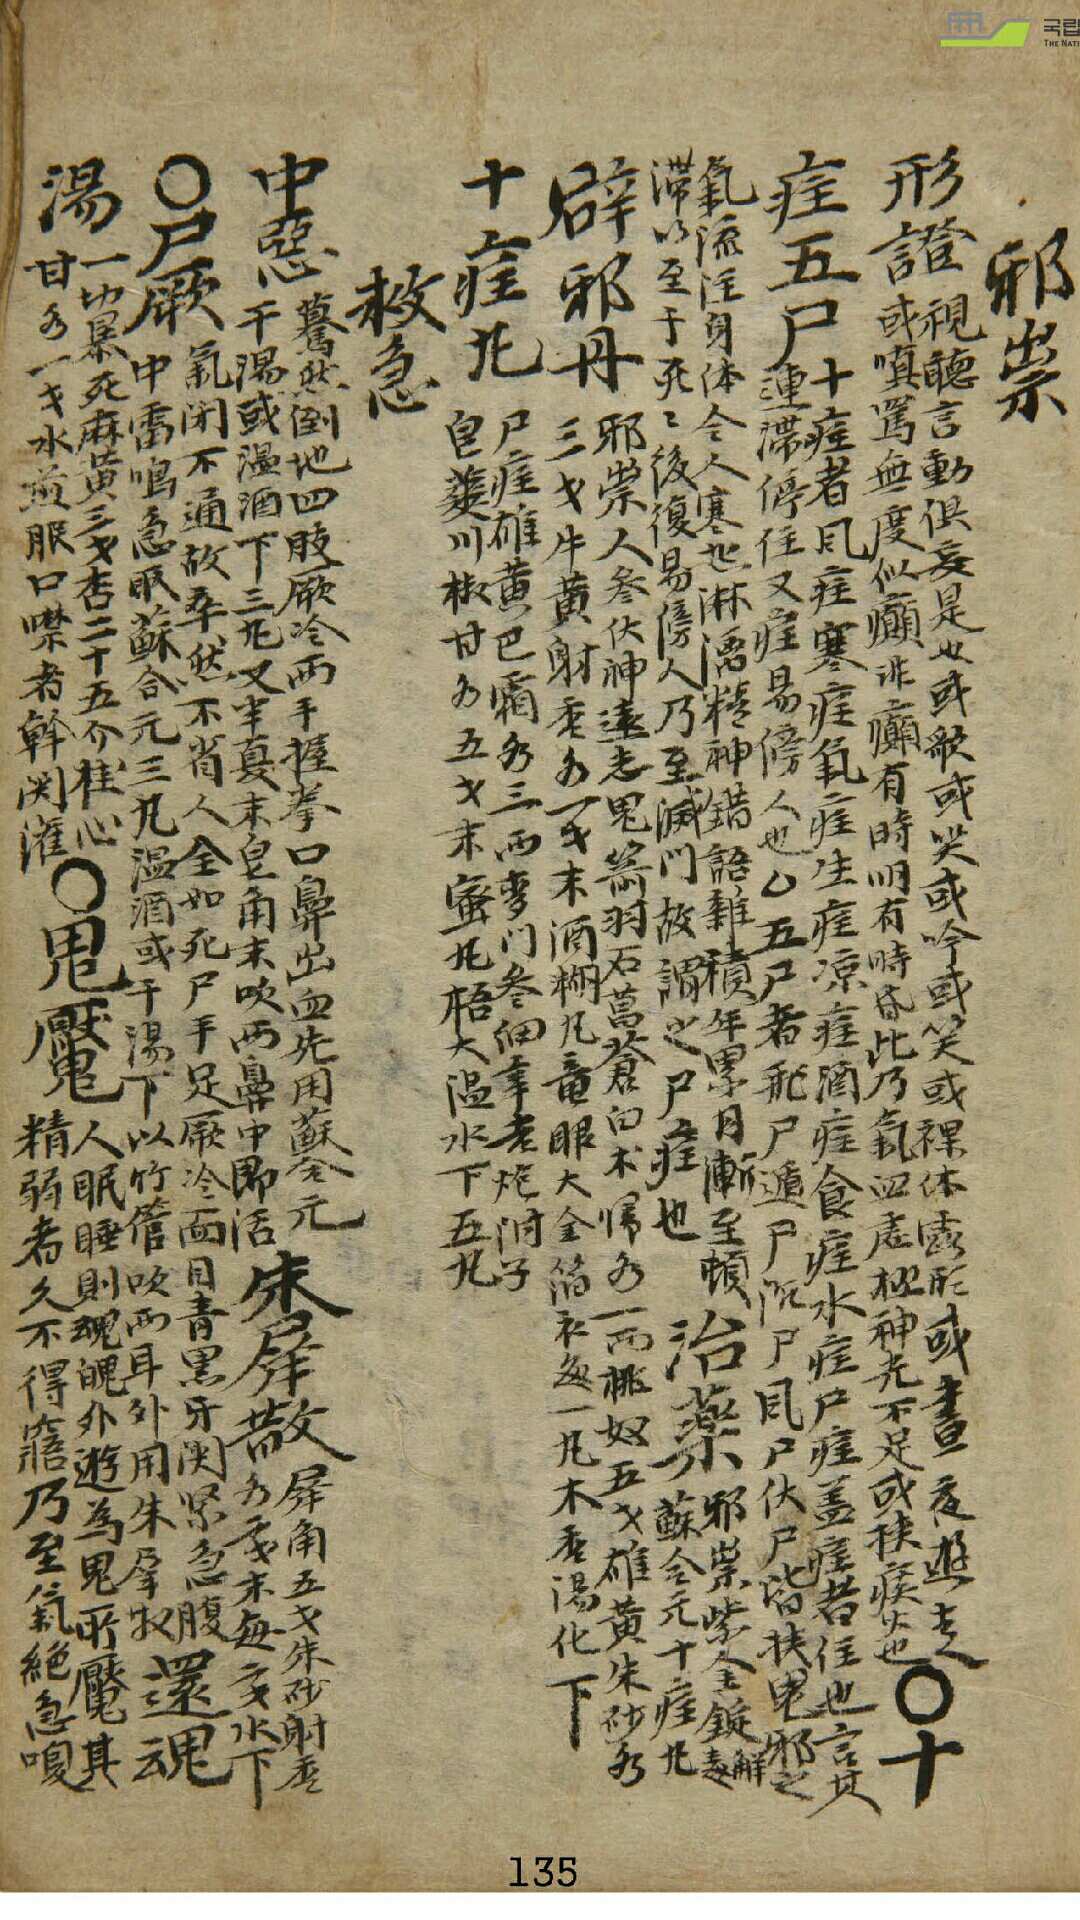 邪祟
形證 視聽言動俱妄是也或歌或哭或吟或笑或裸体露形或晝夜遊走
或嗔罵無度似癲非癲有時明有時昏此乃氣血虛極神光不足或挾痰火也 〇十
疰五尸 十疰者風疰寒疰氣疰生疰凉疰酒疰食疰水疰尸疰盖疰者住也言其
連滯停住又疰易傍人也 五尸者飛尸遁尸沉尸風尸伏尸皆挾鬼邪之
氣流注身体令人寒 淋漓精神錯語雜積年累月漸至頓
滯以至于死〻後復易傍人乃至滅門故謂之尸疰也 治藥 邪祟紫金錠 解毒
蘇合元十疰丸
辟邪丹 邪祟人參伏神遠志鬼箭羽石菖蒼白朮歸各一兩桃奴五戈雄黃朱砂各
三戈牛黃射香各一戈末酒糊丸龍眼大金箔衣每一丸木香湯化下
十疰丸 尸疰雄黃巴霜各三兩麥門參細辛 炮附子
皂莢川椒甘各五戈末蜜丸梧大温水下五丸
救急
中惡 驀然倒地四肢厥冷兩手握拳口鼻出血先用蘇合元
干湯或温酒下三丸又半夏末皂角末吹兩鼻中即活 朱犀散 犀角五戈朱砂射香
各 戈末每 戈水下
〇尸厥 氣閉不通故卒然不省人全如死尸手足厥冷面目青黑牙関緊急腹
中雷鳴急服蘇合元三丸温酒或干湯下以竹管吹兩耳外用朱犀散 還魂
湯 一切暴死麻黃三戈杏二十五介桂心
甘各一戈水煎服口噤者斡関灌 〇鬼魘 人眠睡則魂魄外遊為鬼所魘其
精弱者久不得寤乃至氣絶急
국립
THE NATI
135